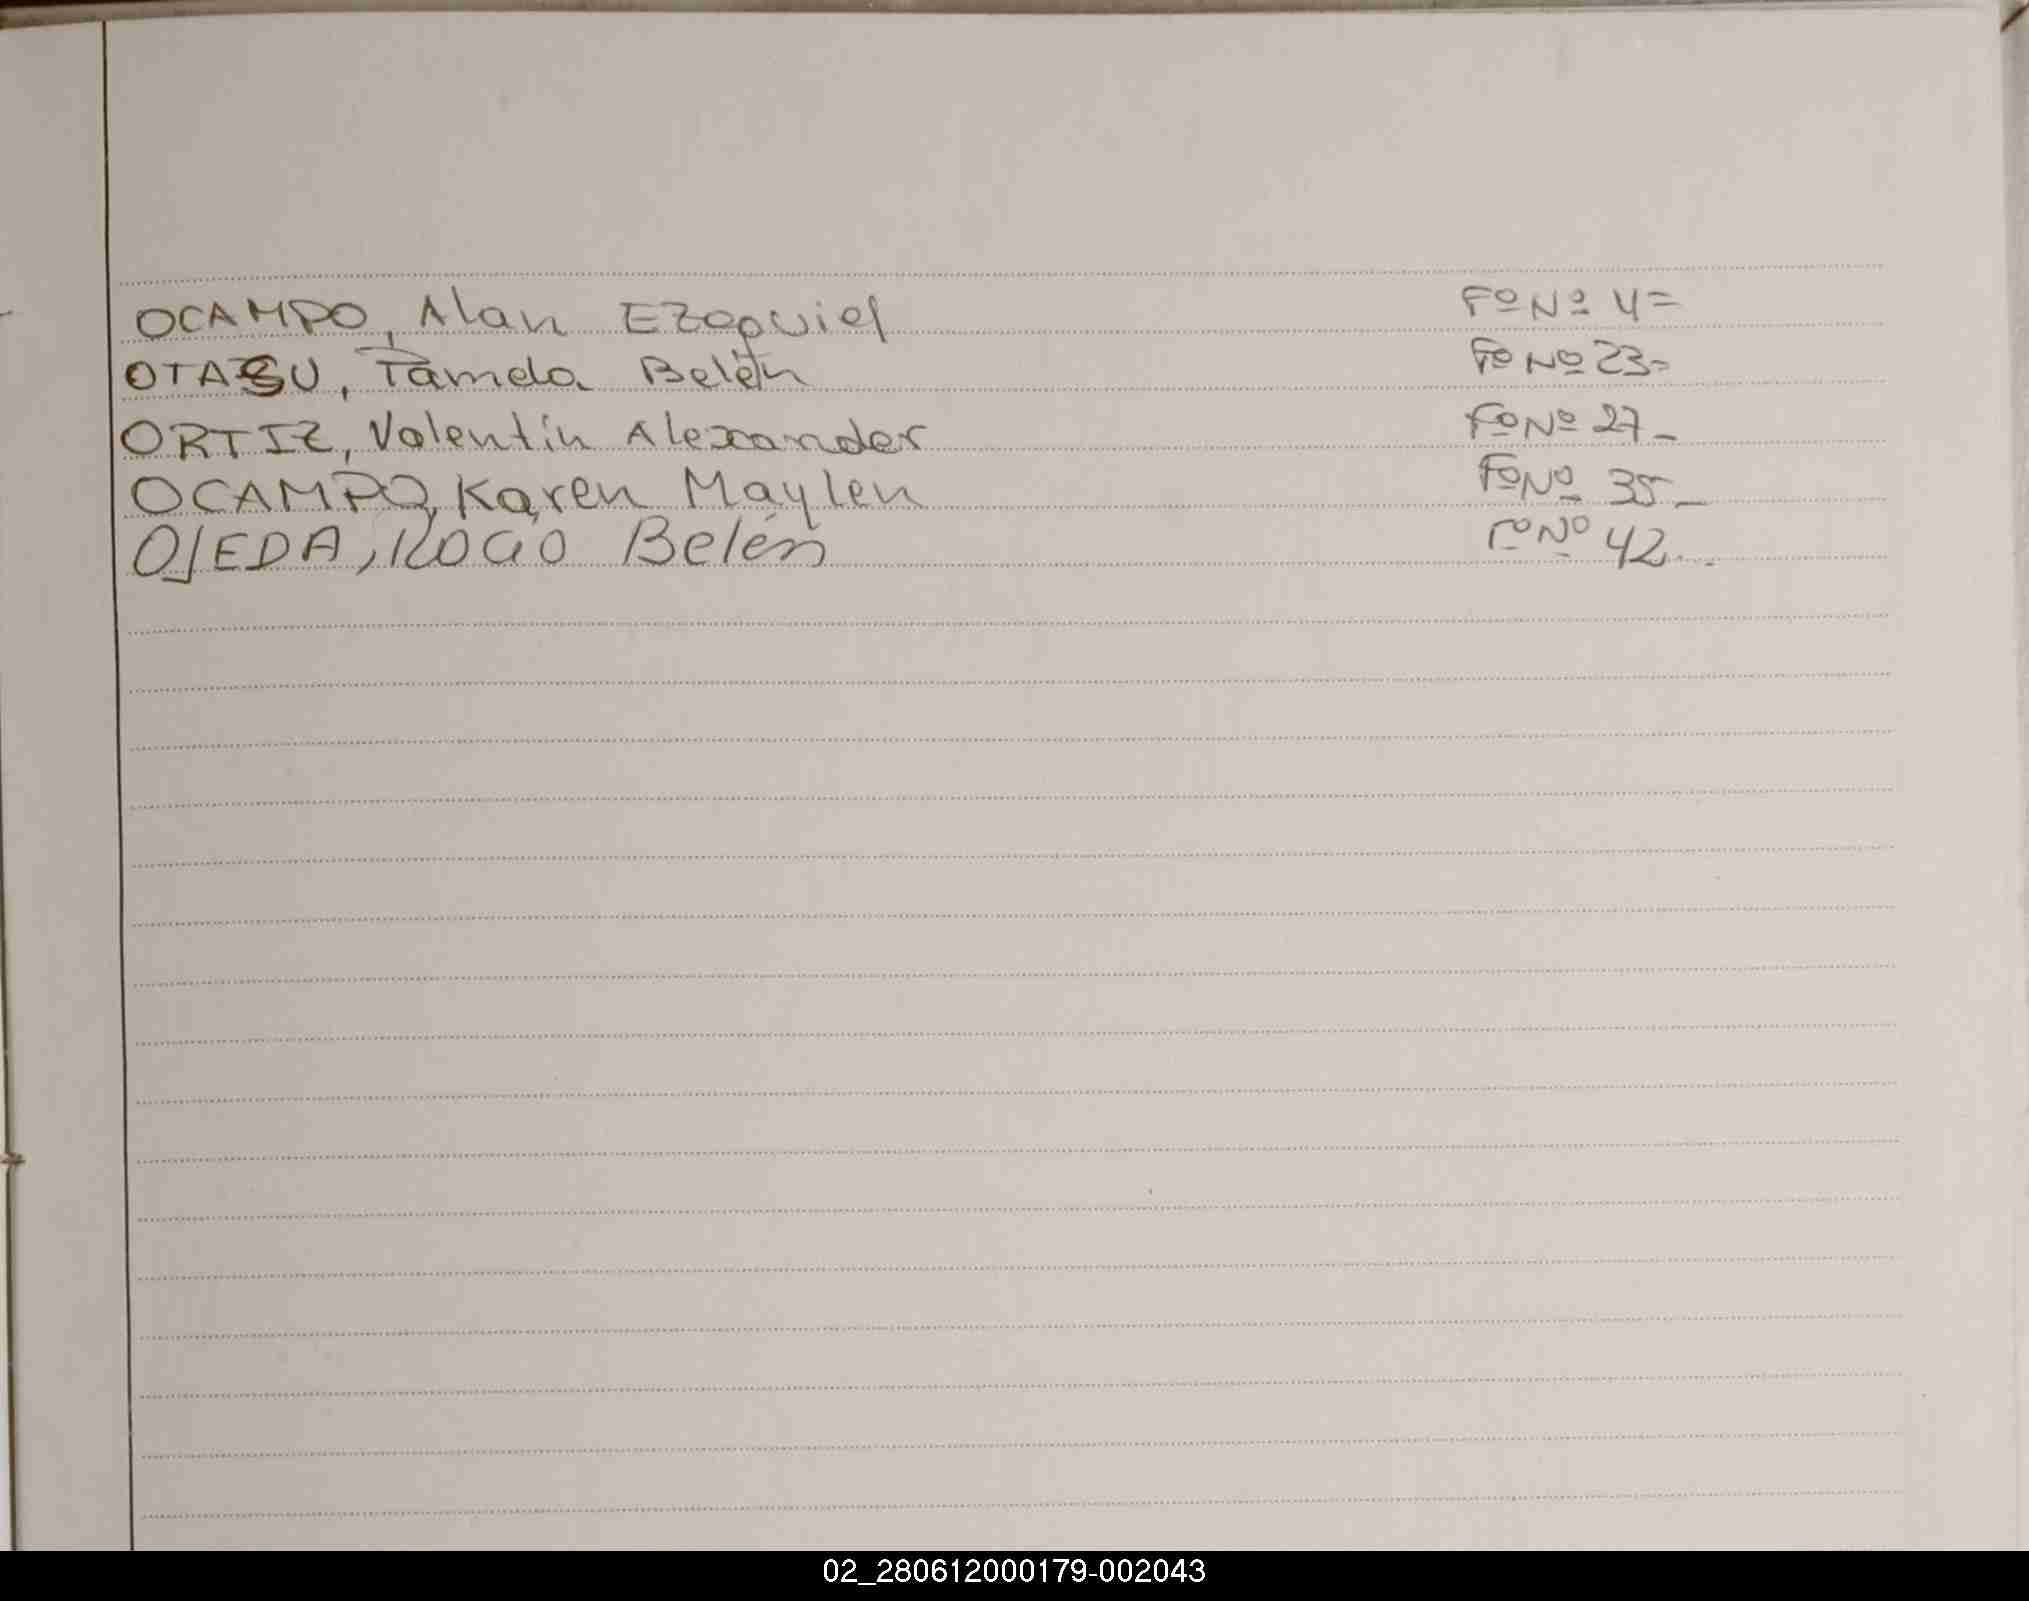 OCAMPO, Alan Ezequiel Fº Nº 4=
OTASU, Pamela Belén Fº Nº 23=
ORTIZ, Valentín Alexander Fº Nº 27_
OCAMPO, Karen Maylen Fº Nº 35_
OJEDA, ROCIO Belén Fº Nº 42_
02_280612000179-002043